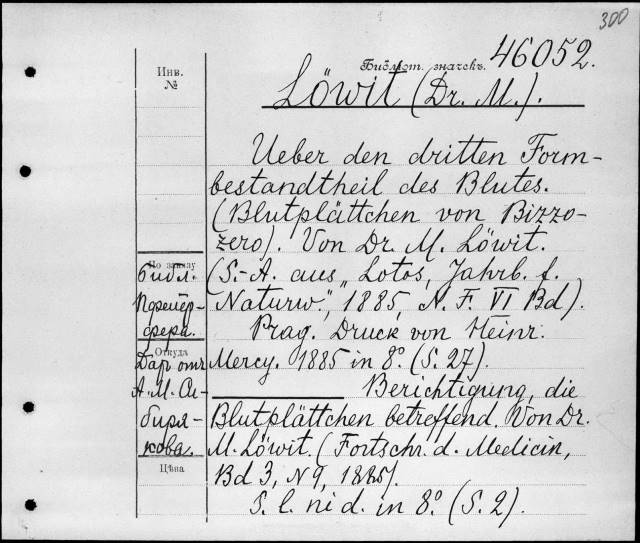 300
Библіот. значекъ. 46052.
Инв.
№
Löwit (Dr. M.).
Ueber den dritten Form-
bestandtheil des Blutes.
(Blutplättchen von Bizzo-
zero). Von Dr. M. Löwit.
По заказу
библ.
(S.-A. aus „Lotos, Jahrb. f.
Naturw.", 1885, N. F. VI Bd).
Prag. Druck von Heinr.
Откуда
Даръ отъ
Mercy. 1885 in 8º. (S. 27).
А. М. Си-
Berichtigung, die
биря-
Blutplättchen betreffend. Von Dr.
кова.
M. Löwit. (Fortschr. d. Medicin,
Цѣна
Bd 3, N 9, 1885).
S. l. ni d. in 8º. (S. 2).